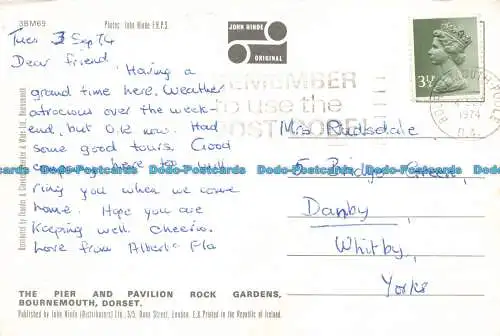 3BM69
Photo: John Hinde F.R.P.S.
JOHN HINDE
ORIGINAL
3½
REMEMBER
to use the
POST CODE
1974
Tues 3 Sep 74
Dear friend,
Having a
grand time here. Weather
atrocious over the week-
end, but O.K now. Had
some good tours. Good
company here too. Will
ring you when we come
home. Hope you are
keeping well. Cheerio.
Love from Albert & Flo
Mrs Rudsdale
5 Bridge Green,
Danby,
Whitby,
Yorks
Dodo-Postcards Dodo-Postcards Dodo-Postcards Dodo-Postcards Dodo-Postcards Dodo-Postcards
THE PIER AND PAVILION ROCK GARDENS,
BOURNEMOUTH, DORSET.
Published by John Hinde (Distributors) Ltd., 3/5, Dean Street, London. E.D. Printed in the Republic of Ireland.